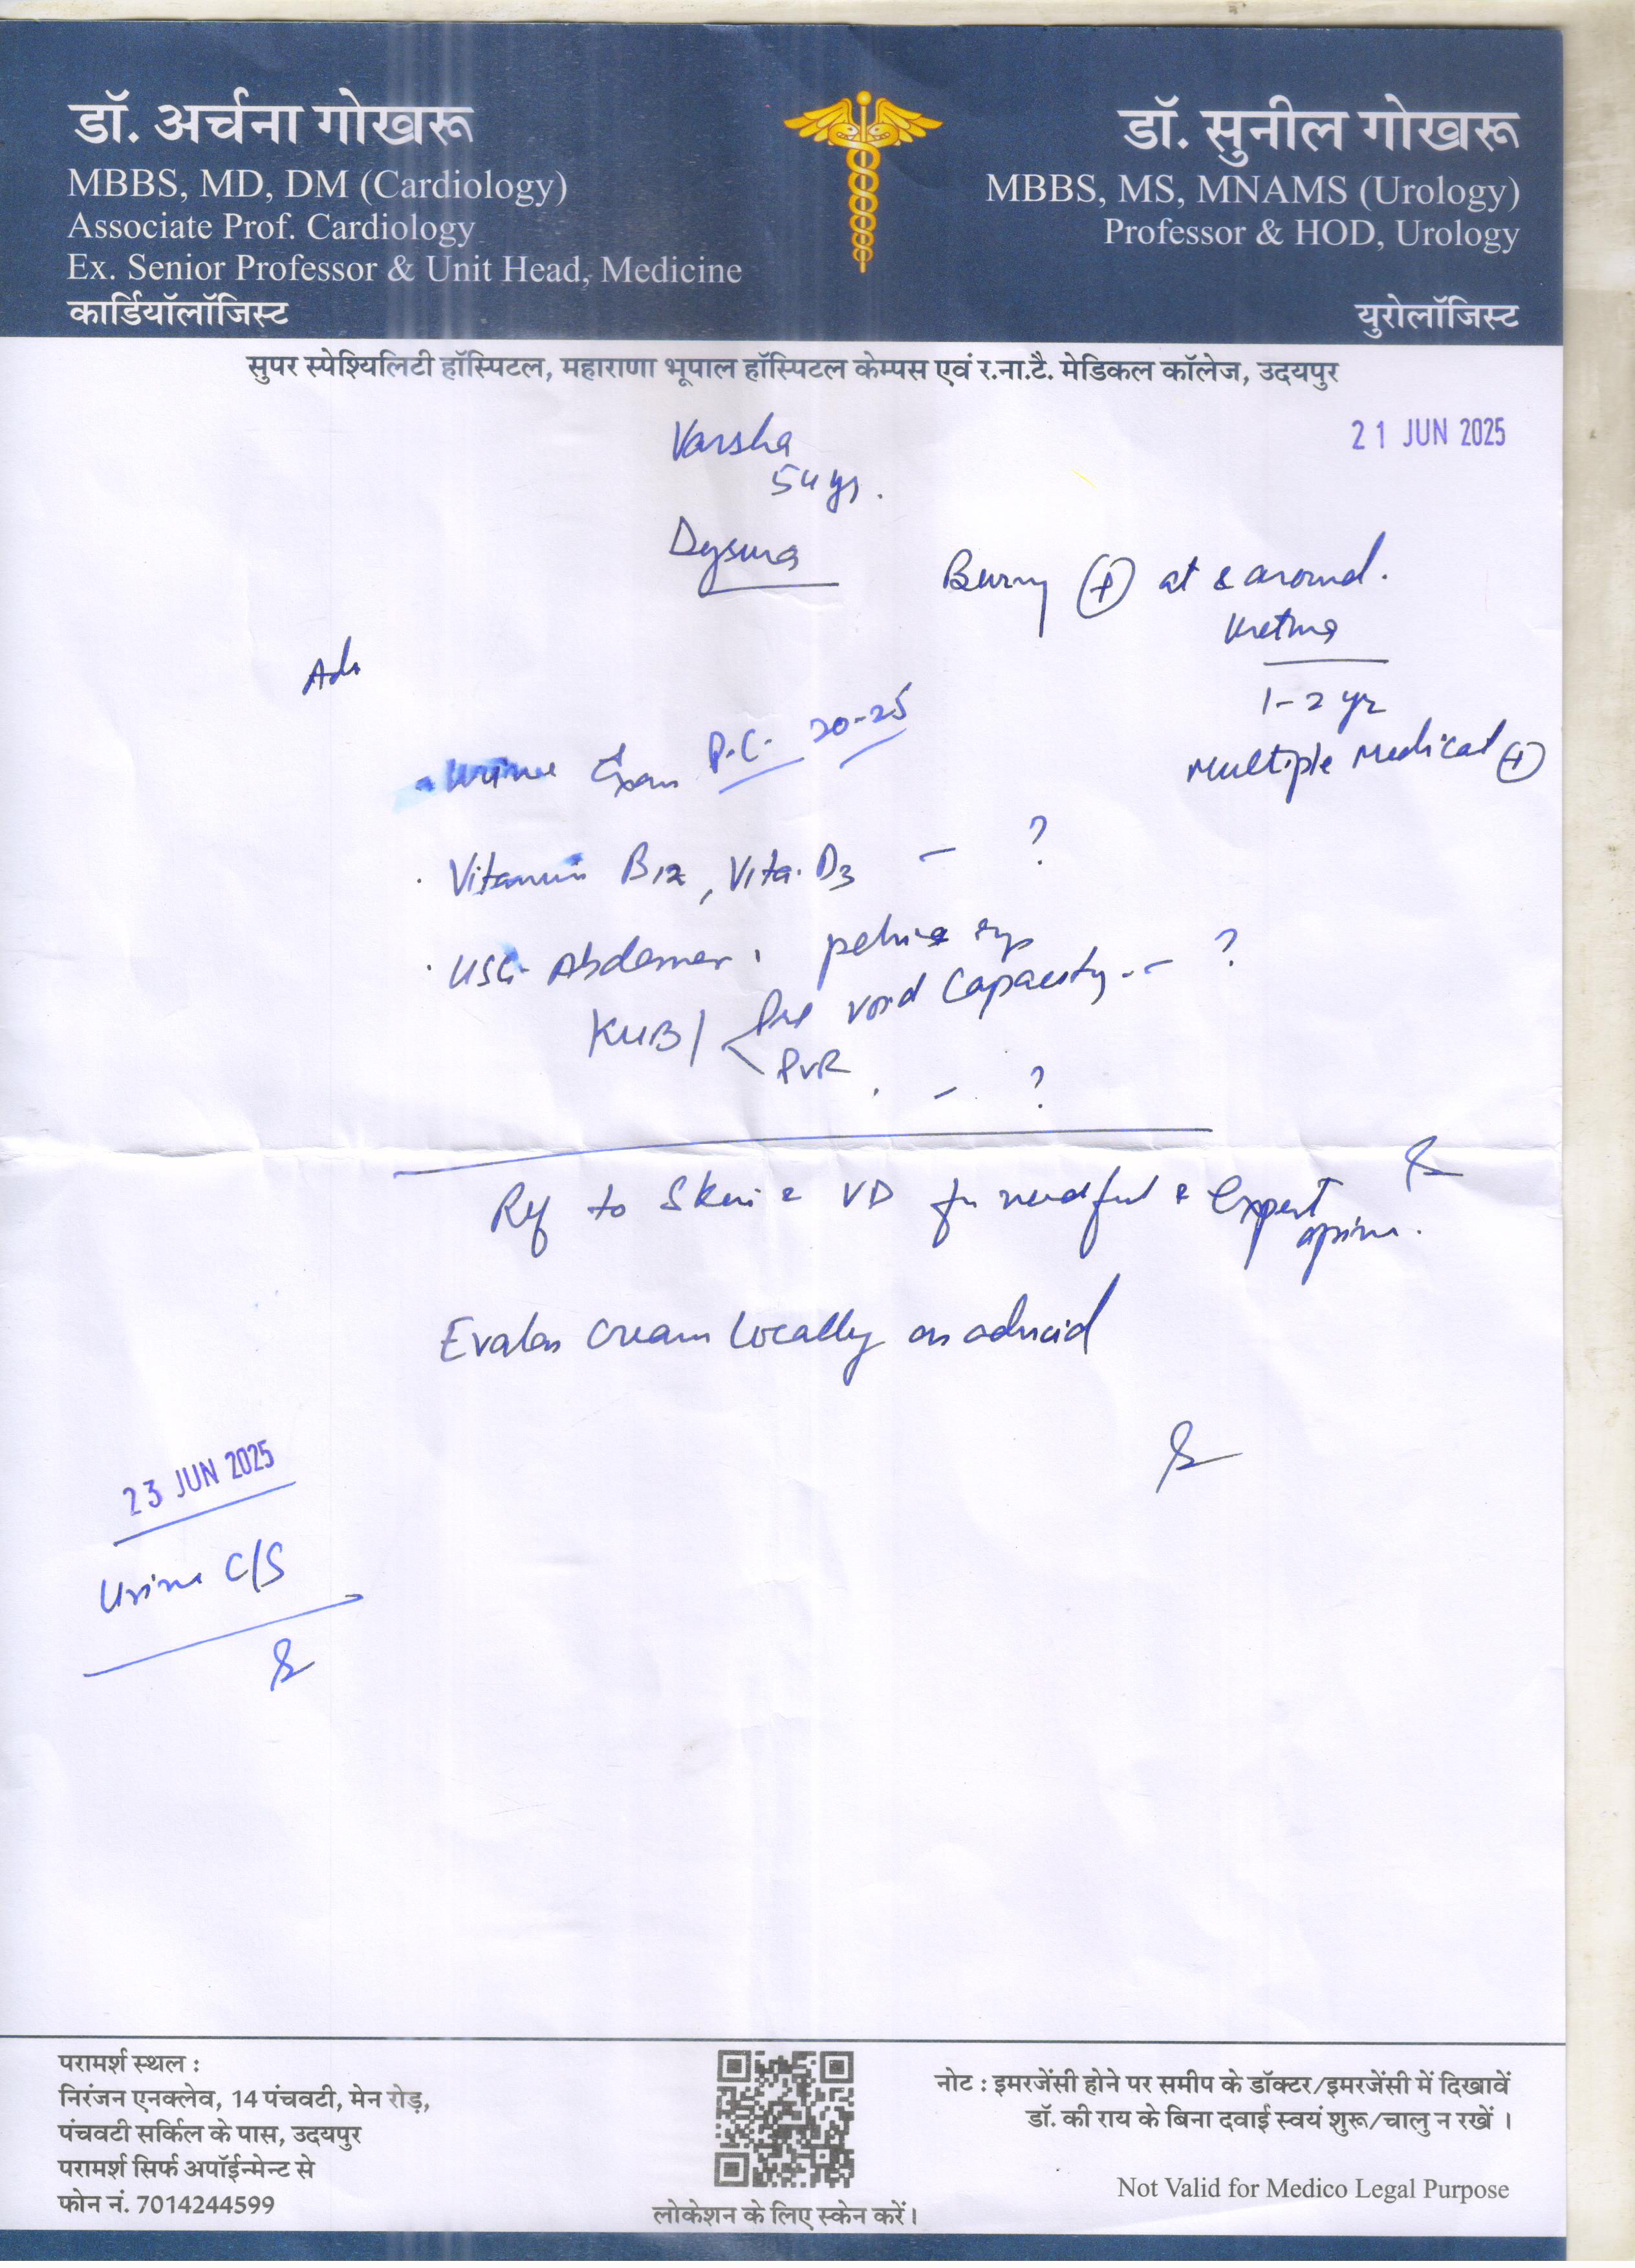 डॉ. अर्चना गोखरू
MBBS, MD, DM (Cardiology)
Associate Prof. Cardiology
Ex. Senior Professor & Unit Head, Medicine
कार्डियॉलॉजिस्ट
डॉ. सुनील गोखरू
MBBS, MS, MNAMS (Urology)
Professor & HOD, Urology
युरोलॉजिस्ट
सुपर स्पेश्यिलिटी हॉस्पिटल, महाराणा भूपाल हॉस्पिटल केम्पस एवं र.ना.टै. मेडिकल कॉलेज, उदयपुर
21 JUN 2025
Varsha
54 yr.
Dysuria
Burny (+) at & around.
Urethra
1-2 yr
Multiple Medical (+)
Adv
Urine Exam P.C. 20-25
Vitamin B12, Vita. D3 - ?
USG Abdomen, pelvis
KUB / Pre void Capacity - ?
PVR - ?
Ref to Skin & VD for needful & Expert opinion.
Evalon Cream Locally as advised
23 JUN 2025
Urine C/S
परामर्श स्थल :
निरंजन एनक्लेव, 14 पंचवटी, मेन रोड़,
पंचवटी सर्किल के पास, उदयपुर
परामर्श सिर्फ अपॉईन्मेन्ट से
फोन नं. 7014244599
लोकेशन के लिए स्केन करें।
नोट : इमरजेंसी होने पर समीप के डॉक्टर/इमरजेंसी में दिखावें
डॉ. की राय के बिना दवाई स्वयं शुरू/चालु न रखें ।
Not Valid for Medico Legal Purpose